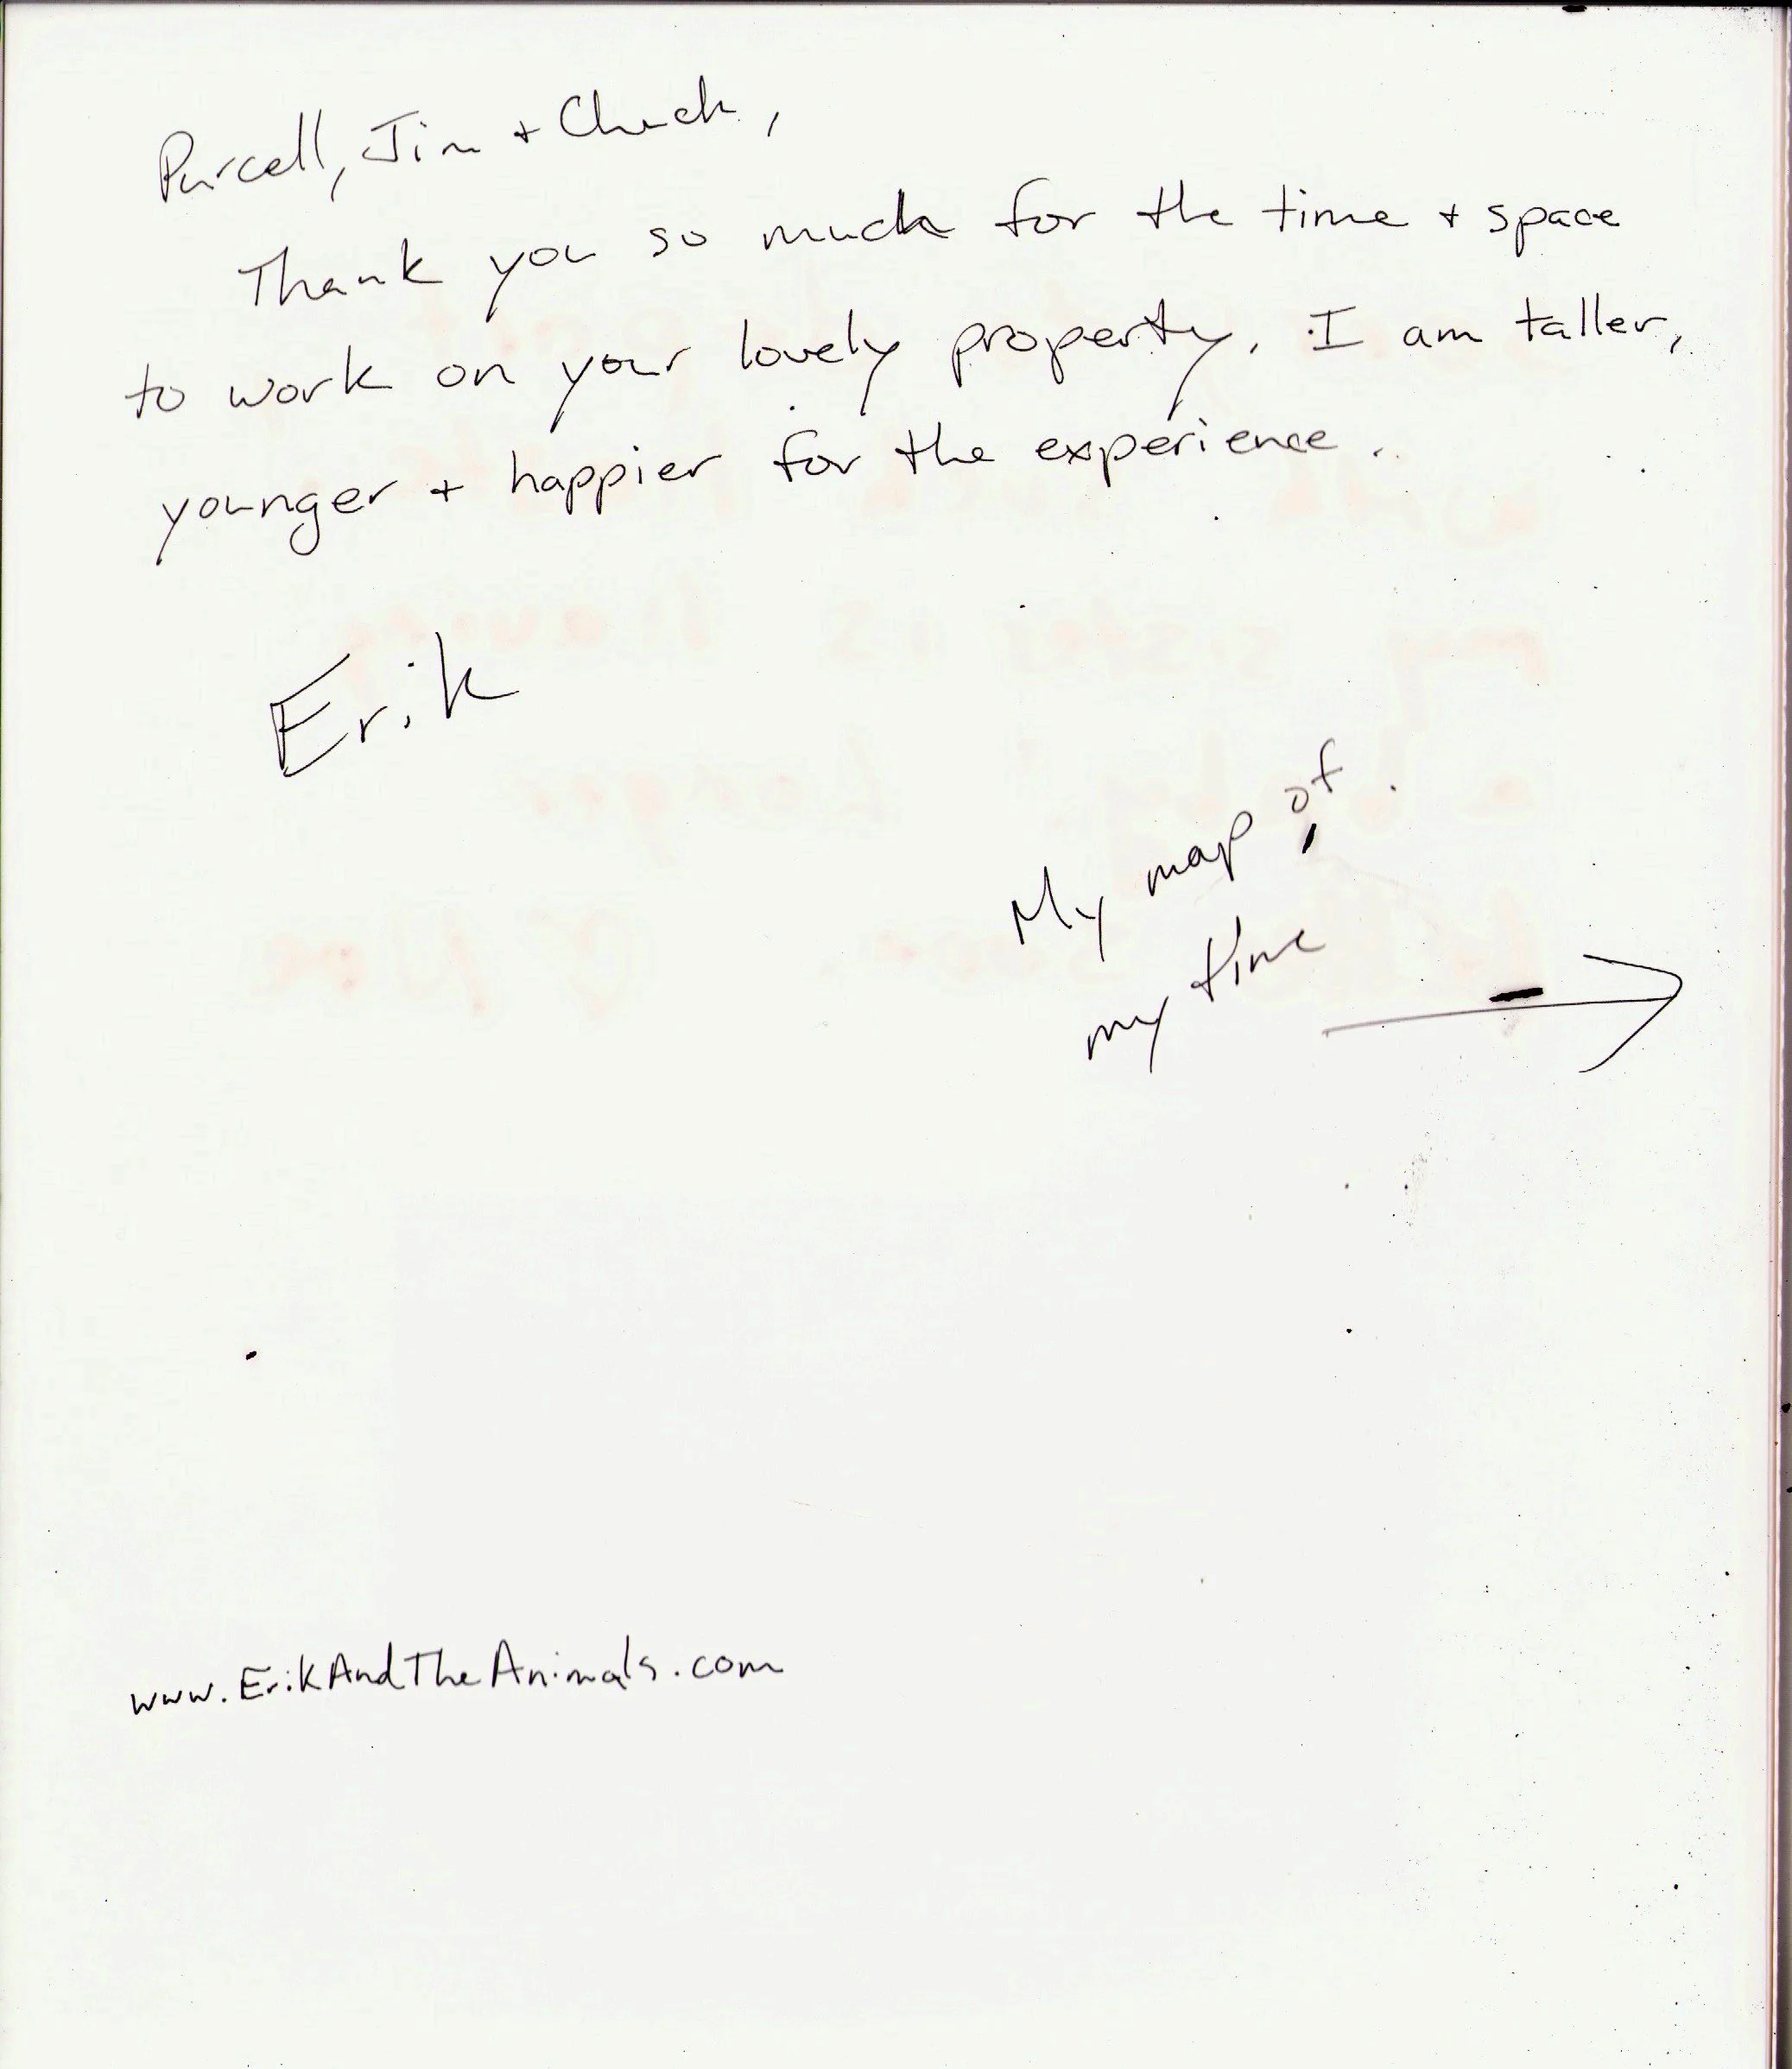 Purcell, Jim + Chuck,
Thank you so much for the time + space
to work on your lovely property. I am taller,
younger + happier for the experience.
Erik
My map of
my time
www.ErikAndTheAnimals.com